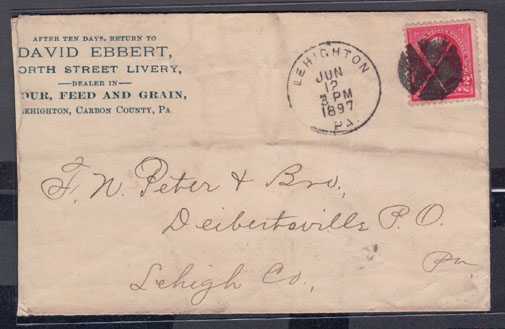 AFTER TEN DAYS, RETURN TO
DAVID EBBERT,
ORTH STREET LIVERY,
—DEALER IN—
OUR, FEED AND GRAIN,
LEHIGHTON, CARBON COUNTY, PA.
LEHIGHTON
JUN
12
3 PM
1897
PA.
F. N. Peter & Bro.
Deibertsville P. O.
Lehigh Co. Pa.